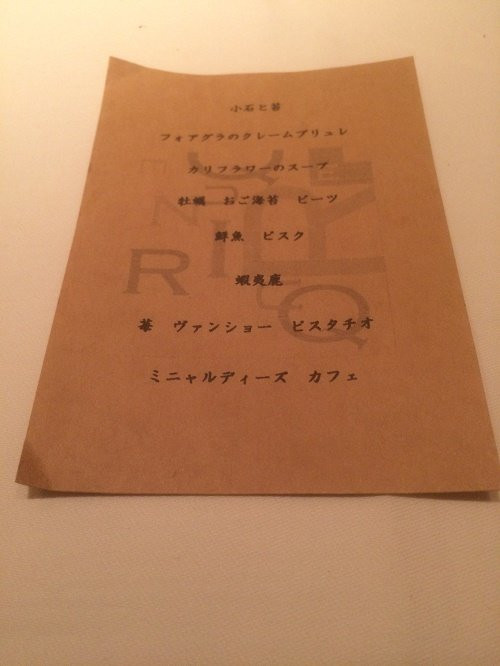 小石と苔
フォアグラのクレームブリュレ
カリフラワーのスープ
牡蠣 おご海苔 ビーツ
鮮魚 ビスク
蝦夷鹿
苺 ヴァンショー ピスタチオ
ミニャルディーズ カフェ